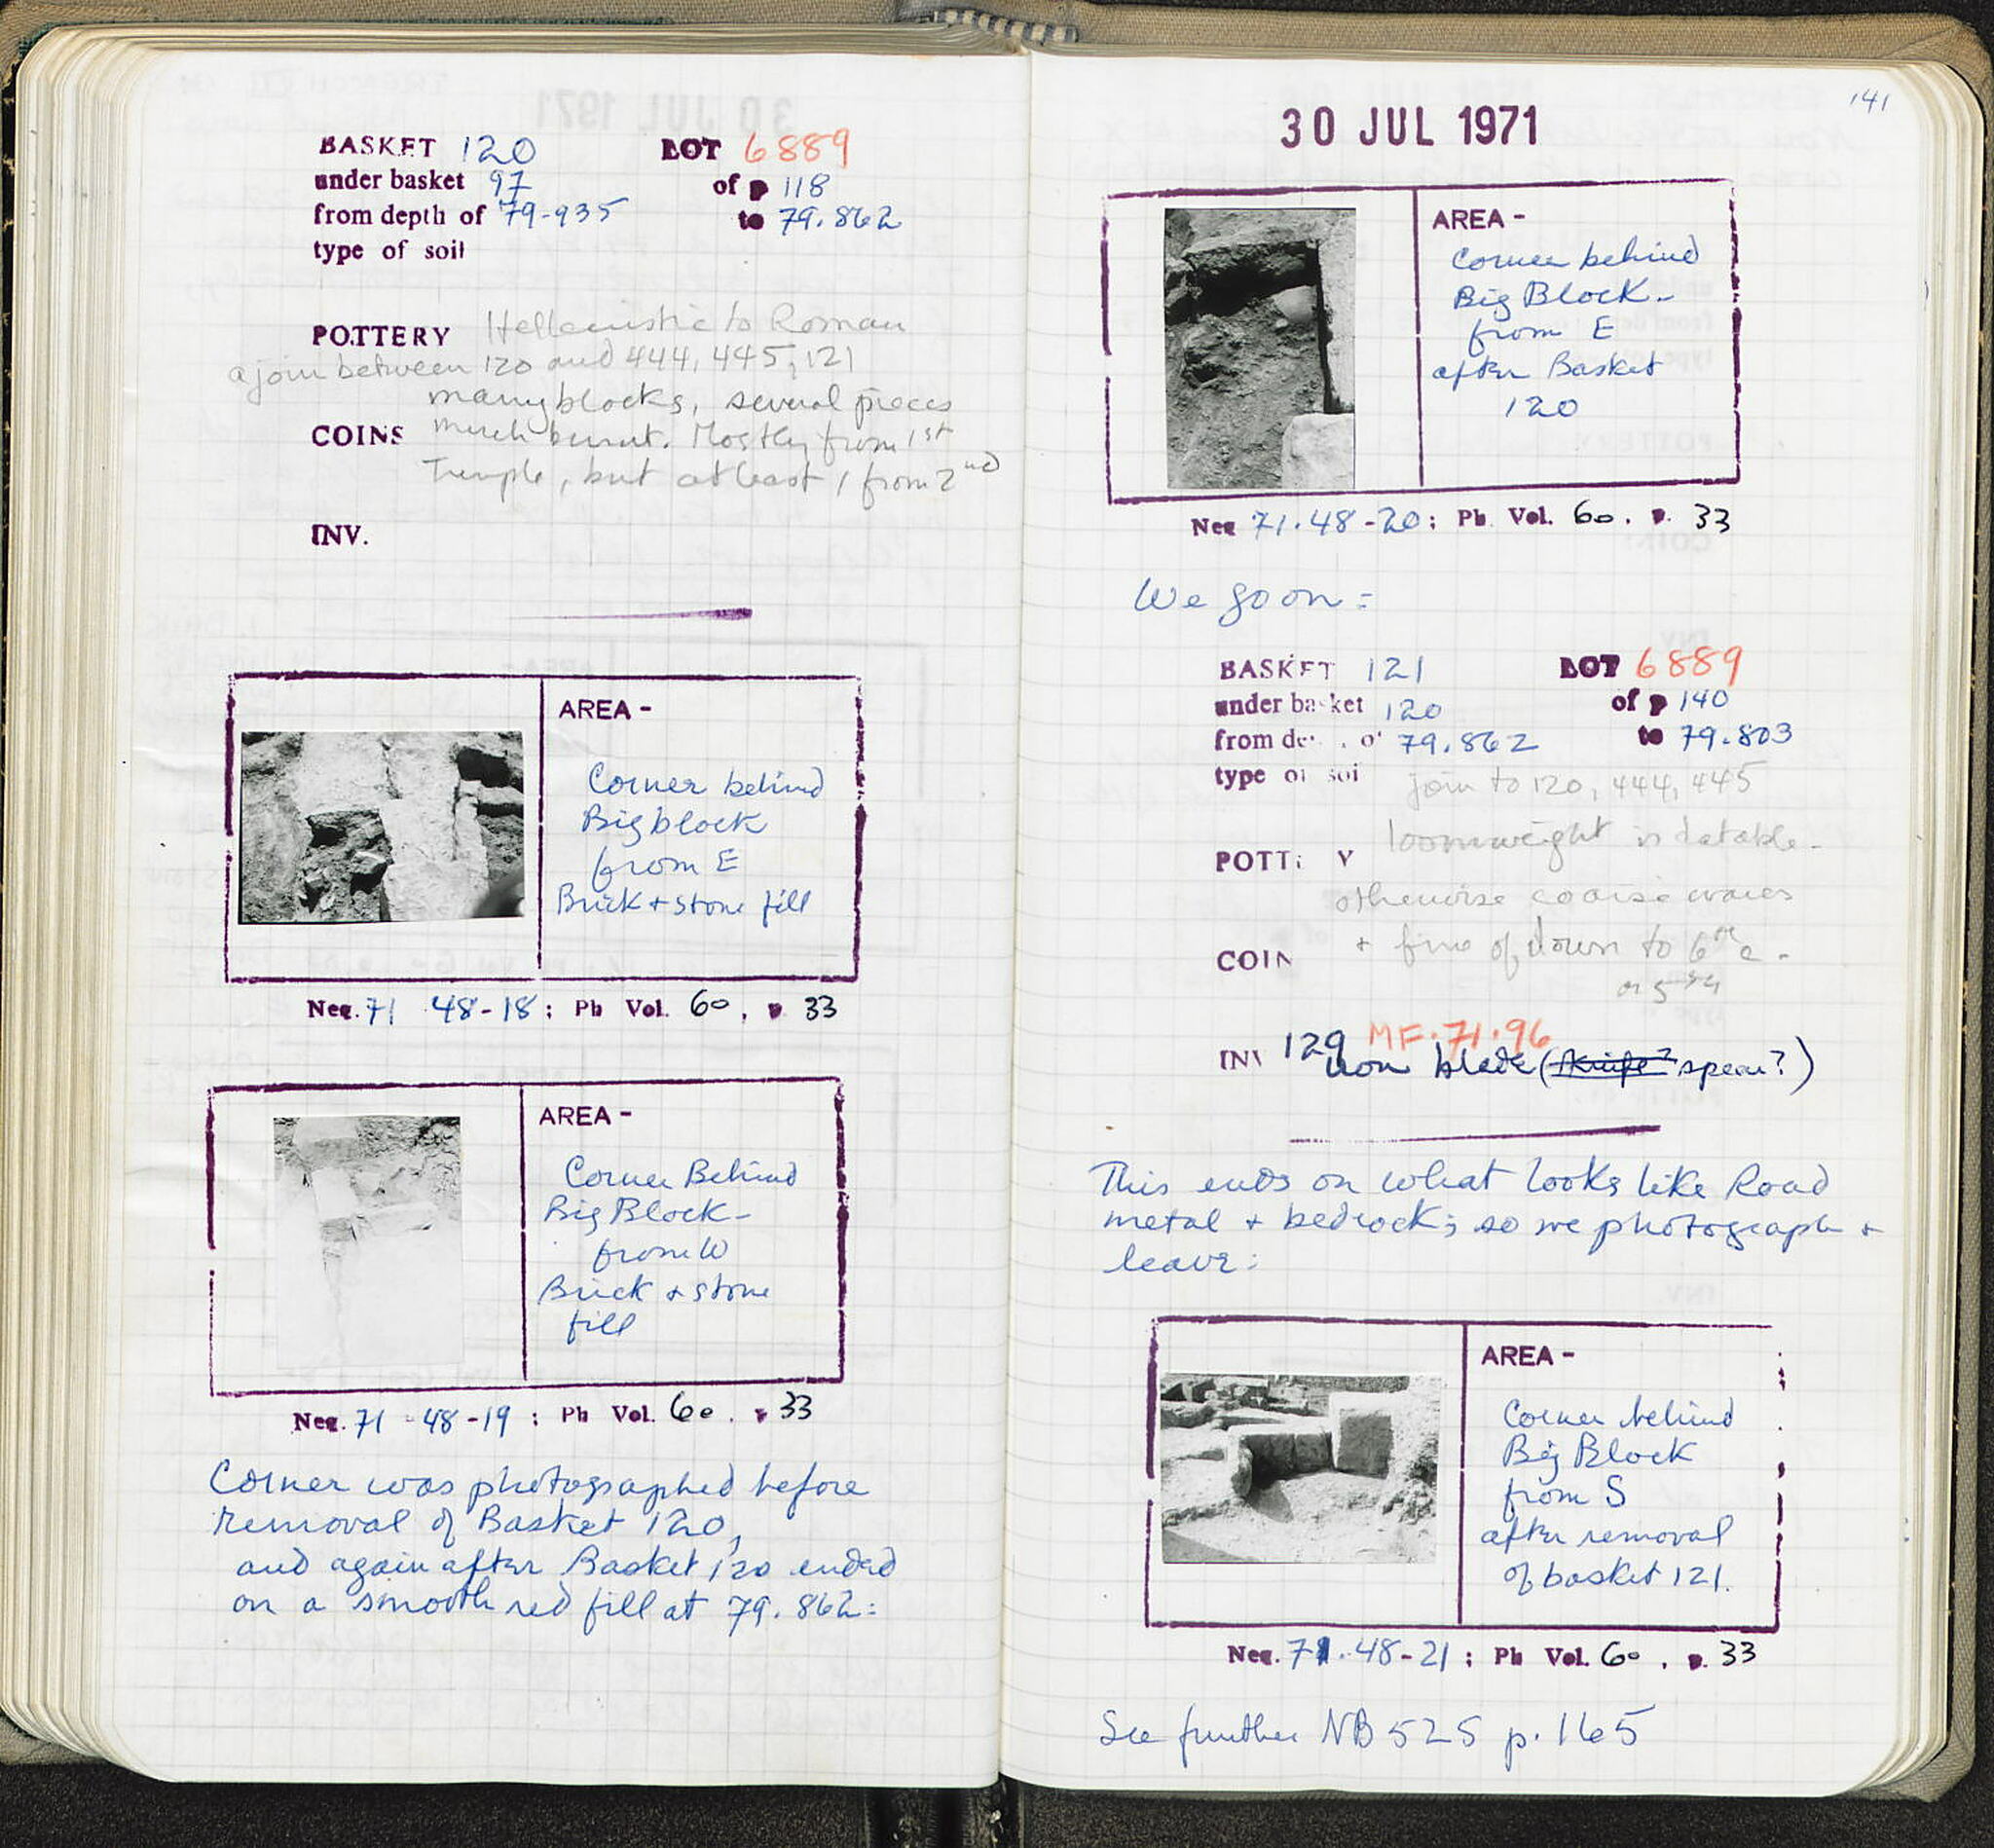 BASKET 120 LOT 6889
under basket 97 of p 118
from depth of 79-935 to 79.862
type of soil
POTTERY Hellenistic to Roman
a join between 120 and 444, 445, 121
many blocks, several pieces
COINS much burnt. Mostly from 1st
Temple, but at least 1 from 2nd
INV.
AREA -
Corner behind
Big block
from E
Brick + stone fill
Neg. 71 48-18; Ph Vol. 60, p 33
AREA -
Corner Behind
Big Block-
from W
Brick + stone
fill
Neg. 71 -48-19; Ph Vol. 60. p 33
Corner was photographed before
removal of Basket 120,
and again after Basket 120 ended
on a smooth red fill at 79.862:
141
30 JUL 1971
AREA -
Corner behind
Big Block-
from E
after Basket
120
Neg 71.48-20; Ph Vol. 60. p. 33
We go on =
BASKET 121 LOT 6889
under basket 120 of p 140
from de . o 79.862 to 79.803
type of soi join to 120, 444, 445
POTT Y loomweight is datable-
otherwise coarse wares
COIN + fine of down to 6th c.
or 5th
INV 129 MF.71.96
iron blade (knife? spear?)
This ends on what looks like Road
metal + bedrock; so we photograph +
leave:
AREA -
Corner behind
Big Block
from S
after removal
of basket 121.
Neg. 71.48-21; Ph Vol. 60. p. 33
See further NB 525 p. 165